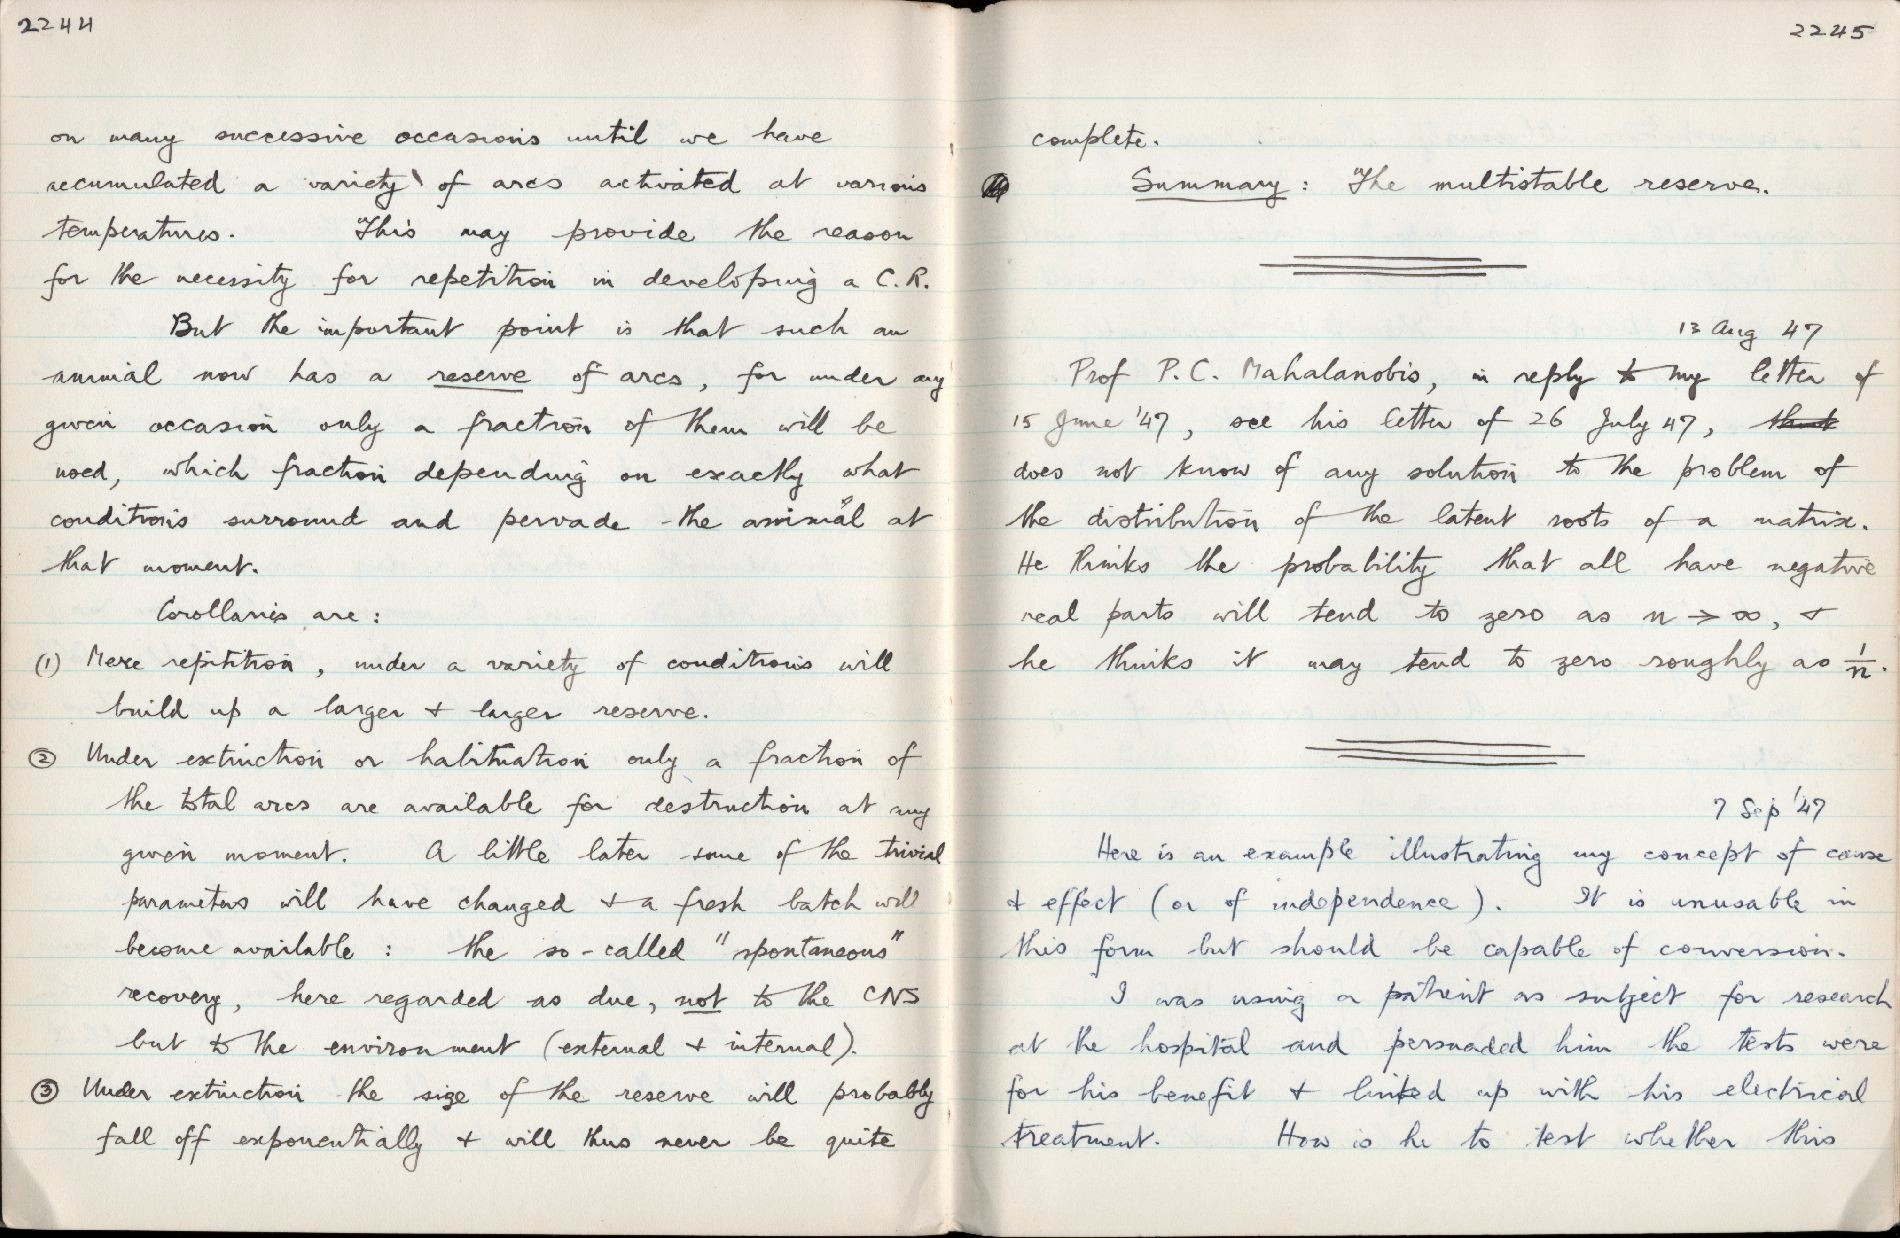 2244
on many successive occasions until we have
accumulated a variety of arcs activated at various
temperatures. This may provide the reason
for the necessity for repetition in developing a C.R.
But the important point is that such an
animal now has a reserve of arcs, for under any
given occasion only a fraction of them will be
used, which fraction depending on exactly what
conditions surround and pervade the animal at
that moment.
Corollaries are:
(1) Mere repitition, under a variety of conditions will
build up a larger & larger reserve.
(2) Under extinction or habituation only a fraction of
the total arcs are available for destruction at any
given moment. A little later some of the trivial
parameters will have changed & a fresh batch will
become available: the so-called "spontaneous"
recovery, here regarded as due, not to the CNS
but to the environment (external & internal).
(3) Under extinction the size of the reserve will probably
fall off exponentially & will thus never be quite
2245
complete.
Summary: The multistable reserve.
13 Aug 47
Prof P.C. Mahalanobis, in reply to my letter of
15 June '47, see his letter of 26 July 47, think
does not know of any solution to the problem of
the distribution of the latent roots of a matrix.
He thinks the probability that all have negative
real parts will tend to zero as n → ∞, &
he thinks it may tend to zero roughly as 1/n.
7 Sep '47
Here is an example illustrating my concept of cause
& effect (or of independence). It is unusable in
this form but should be capable of conversion.
I was using a patient as subject for research
at the hospital and persuaded him the tests were
for his benefit & linked up with his electrical
treatment. How is he to test whether this